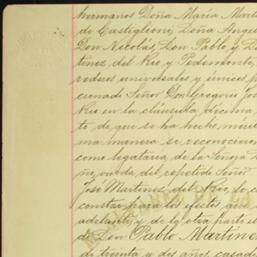 hermanos Doña María Mart
de Castiglioni, Doña Ange
Don Nicolás, Don Pablo y D
tinez del Rio y Pedemonte,
rederos universales y únicos p
cionado Señor Don Gregorio Jos
Rio en la cláusula décima
to, de que se ha hecho méri
ma manera se reconocier
como legataria de la Señora
viuda del repetido Señor
José Martinez del Rio, lo c
constar para los efectos que
adelante; y de la otra parte el
Don Pablo Martine
de treinta y dos años casad